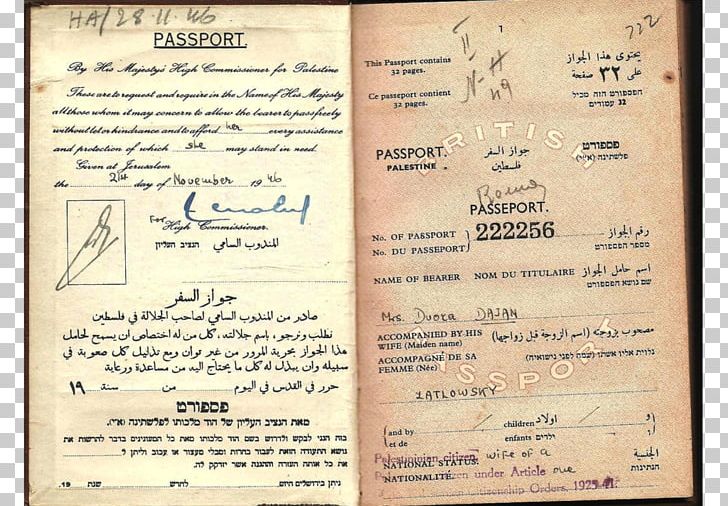 HA/28.11.46
PASSPORT.
By His Majesty's High Commissioner for Palestine
These are to request and require in the Name of His Majesty
all those whom it may concern to allow the bearer to pass freely
without let or hindrance and to afford her every assistance
and protection of which she may stand in need.
Given at Jerusalem
the 2nd day of November 1946
For High Commissioner.
المندوب السامي הנציב העליון
جواز السفر
صادر من المندوب السامي لصاحب الجلالة في فلسطين
نطلب ونرجو، باسم جلالته، كل من له اختصاص ان يسمح لحامل
هذا الجواز بحرية المرور من غير توان ومع تذليل كل صعوبة في
سبيله وان يبذل له كل ما يحتاج اليه من مساعدة ورعاية
حرر في القدس في اليوم من سنة ١٩
פספורט
מאת הנציב העליון של הוד מלכותו לפלשתינה (א״י).
בזה הנני לבקש ולדרוש בשם הוד מלכותו מאת כל המעונינים בדבר להרשות את
נושא התעודה הזאת לעבור בחרות ומבלי מעצור או עכוב וליתן לו
את כל אותה העזרה וההגנה אשר יזדקק לה.
ניתן בירושלים היום לחדש שנת 19
7
222
This Passport contains
32 pages.
Ce passeport contient
32 pages.
II
N-H
49
يحتوي هذا الجواز
على ٣٢ صفحة
הפספורט הזה מכיל
32 עמודים
BRITISH
PASSPORT. جواز السفر פספורט
PALESTINE فلسطين פלשתינה (א״י)
PASSEPORT.
No. OF PASSPORT 222256 رقم الجواز
No. DU PASSEPORT מספר הפספורט
NAME OF BEARER NOM DU TITULAIRE اسم حامل الجواز
שם נושא הפספורט
Mrs. Dvora DAJAN
ACCOMPANIED BY HIS
WIFE (Maiden name)
مصحوب بزوجته (اسم الزوجة قبل زواجها)
ACCOMPAGNÉ DE SA
FEMME (Née)
נלוית אליו אשתו (שמה לפני נישואיה)
PASSPORT
ZATLOWSKY
and by children اولاد و
et de enfants ילדים ו
Palestinian citizen wife of a
NATIONAL STATUS: الجنسية
citizen under Article one
NATIONALITÉ. הנתינות
Citizenship Orders, 1925-41.